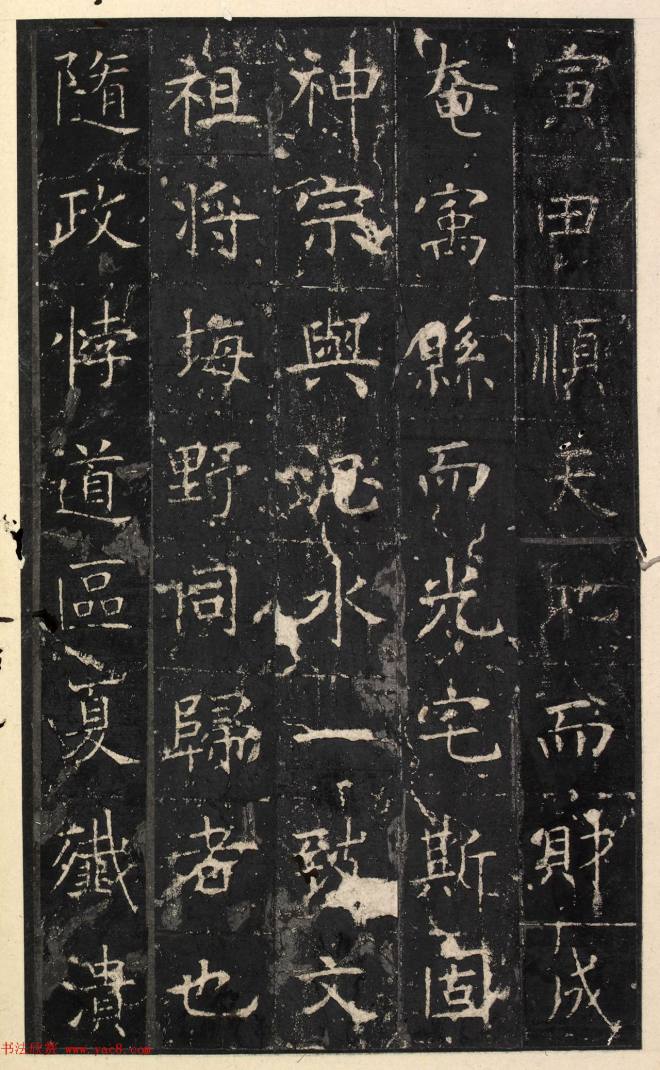 寅順天地而財成
奄寓縣而光宅斯固
神宗與水一致文
祖將坶野同歸者也
隨政悖道區夏殲潰
书法欣赏 www.yac8.com